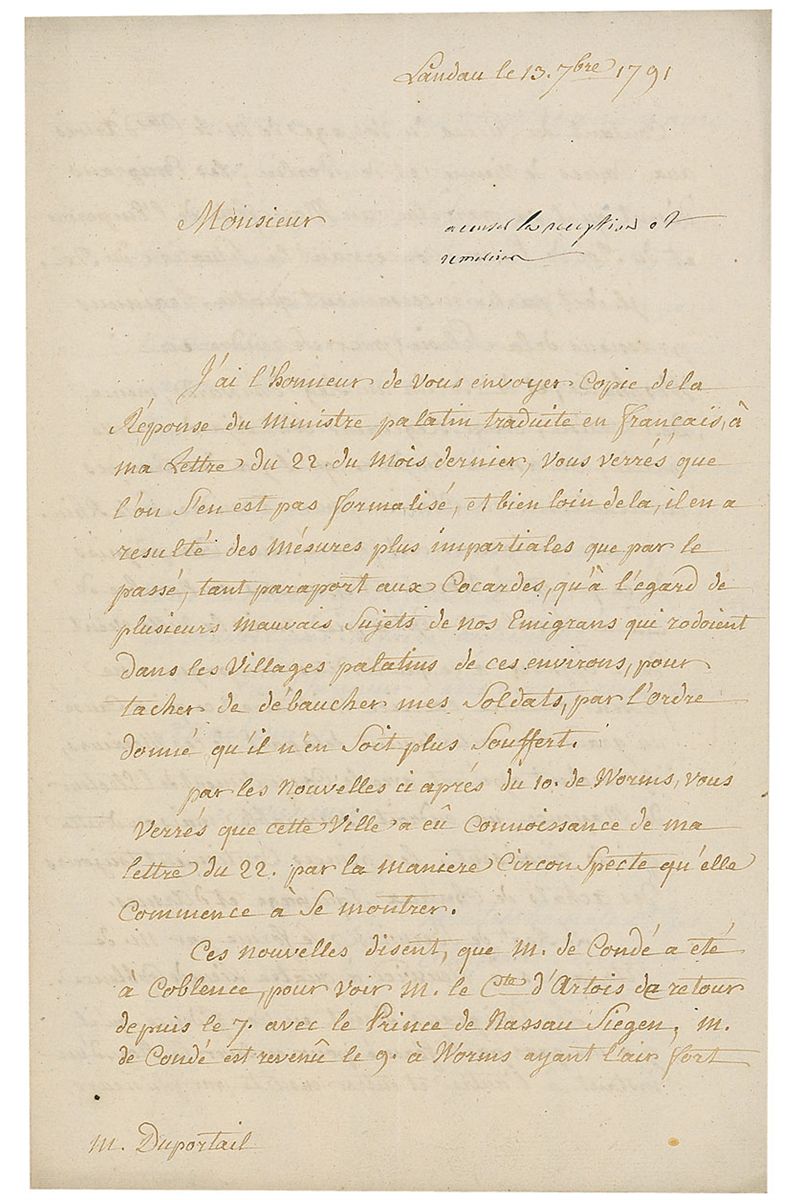 Landau le 13. 7bre 1791
Monsieur
accuser la reception et
remercier
J'ai l'honneur de vous envoyer Copie de la
Réponse du Ministre palatin traduite en françaiš, à
ma Lettre du 22. du mois dernier, vous verrés que
l'on s'en est pas formalisé, et bien loin de la, il en a
resulté des mésures plus impartiales que par le
passé, tant paraport aux Cocardes, qu'à l'egard de
plusieurs mauvais Sujets de nos Emigrans qui rodoient
dans les Villages palatins de ces environs, pour
tacher de débaucher mes Soldats, par l'ordre
donné, qu'il n'en Soit plus Souffert.
par les Nouvelles ci aprés du 10. de Worms, vous
verrés que cette Ville a eû Connoissance de ma
lettre du 22. par la maniere CirconSpecte qu'elle
Commence à Se montrer.
Ces nouvelles disent, que M. de Condé a eté
a Coblence, pour voir M. le Cte d'Artois de retour
depuis le 7. avec le Prince de Nassau Siegen, M.
de Condé est revenû le 9. à Worms ayant l'air fort
M. Duportail